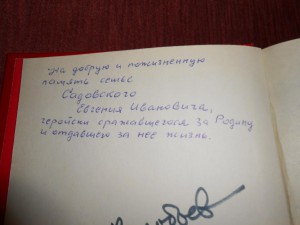 На добрую и пожизненную
память семье
Садовского
Евгения Ивановича,
геройски сражавшегося за Родину
и отдавшего за неё жизнь.